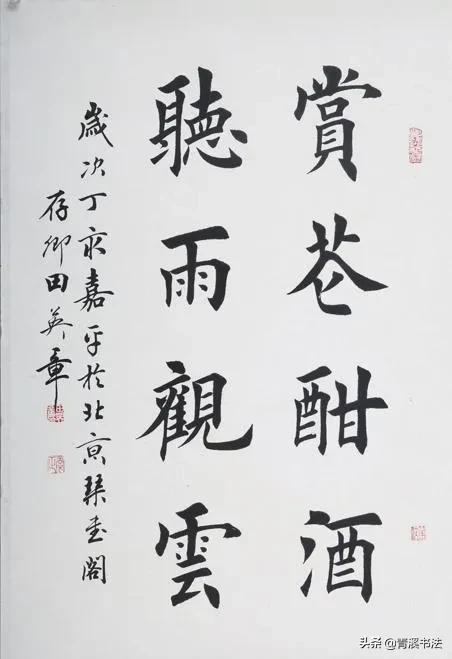 賞花酣酒
聽雨觀雲
歲次丁亥嘉平於北京琹書閣
存卿田英章
头条 @青溪书法